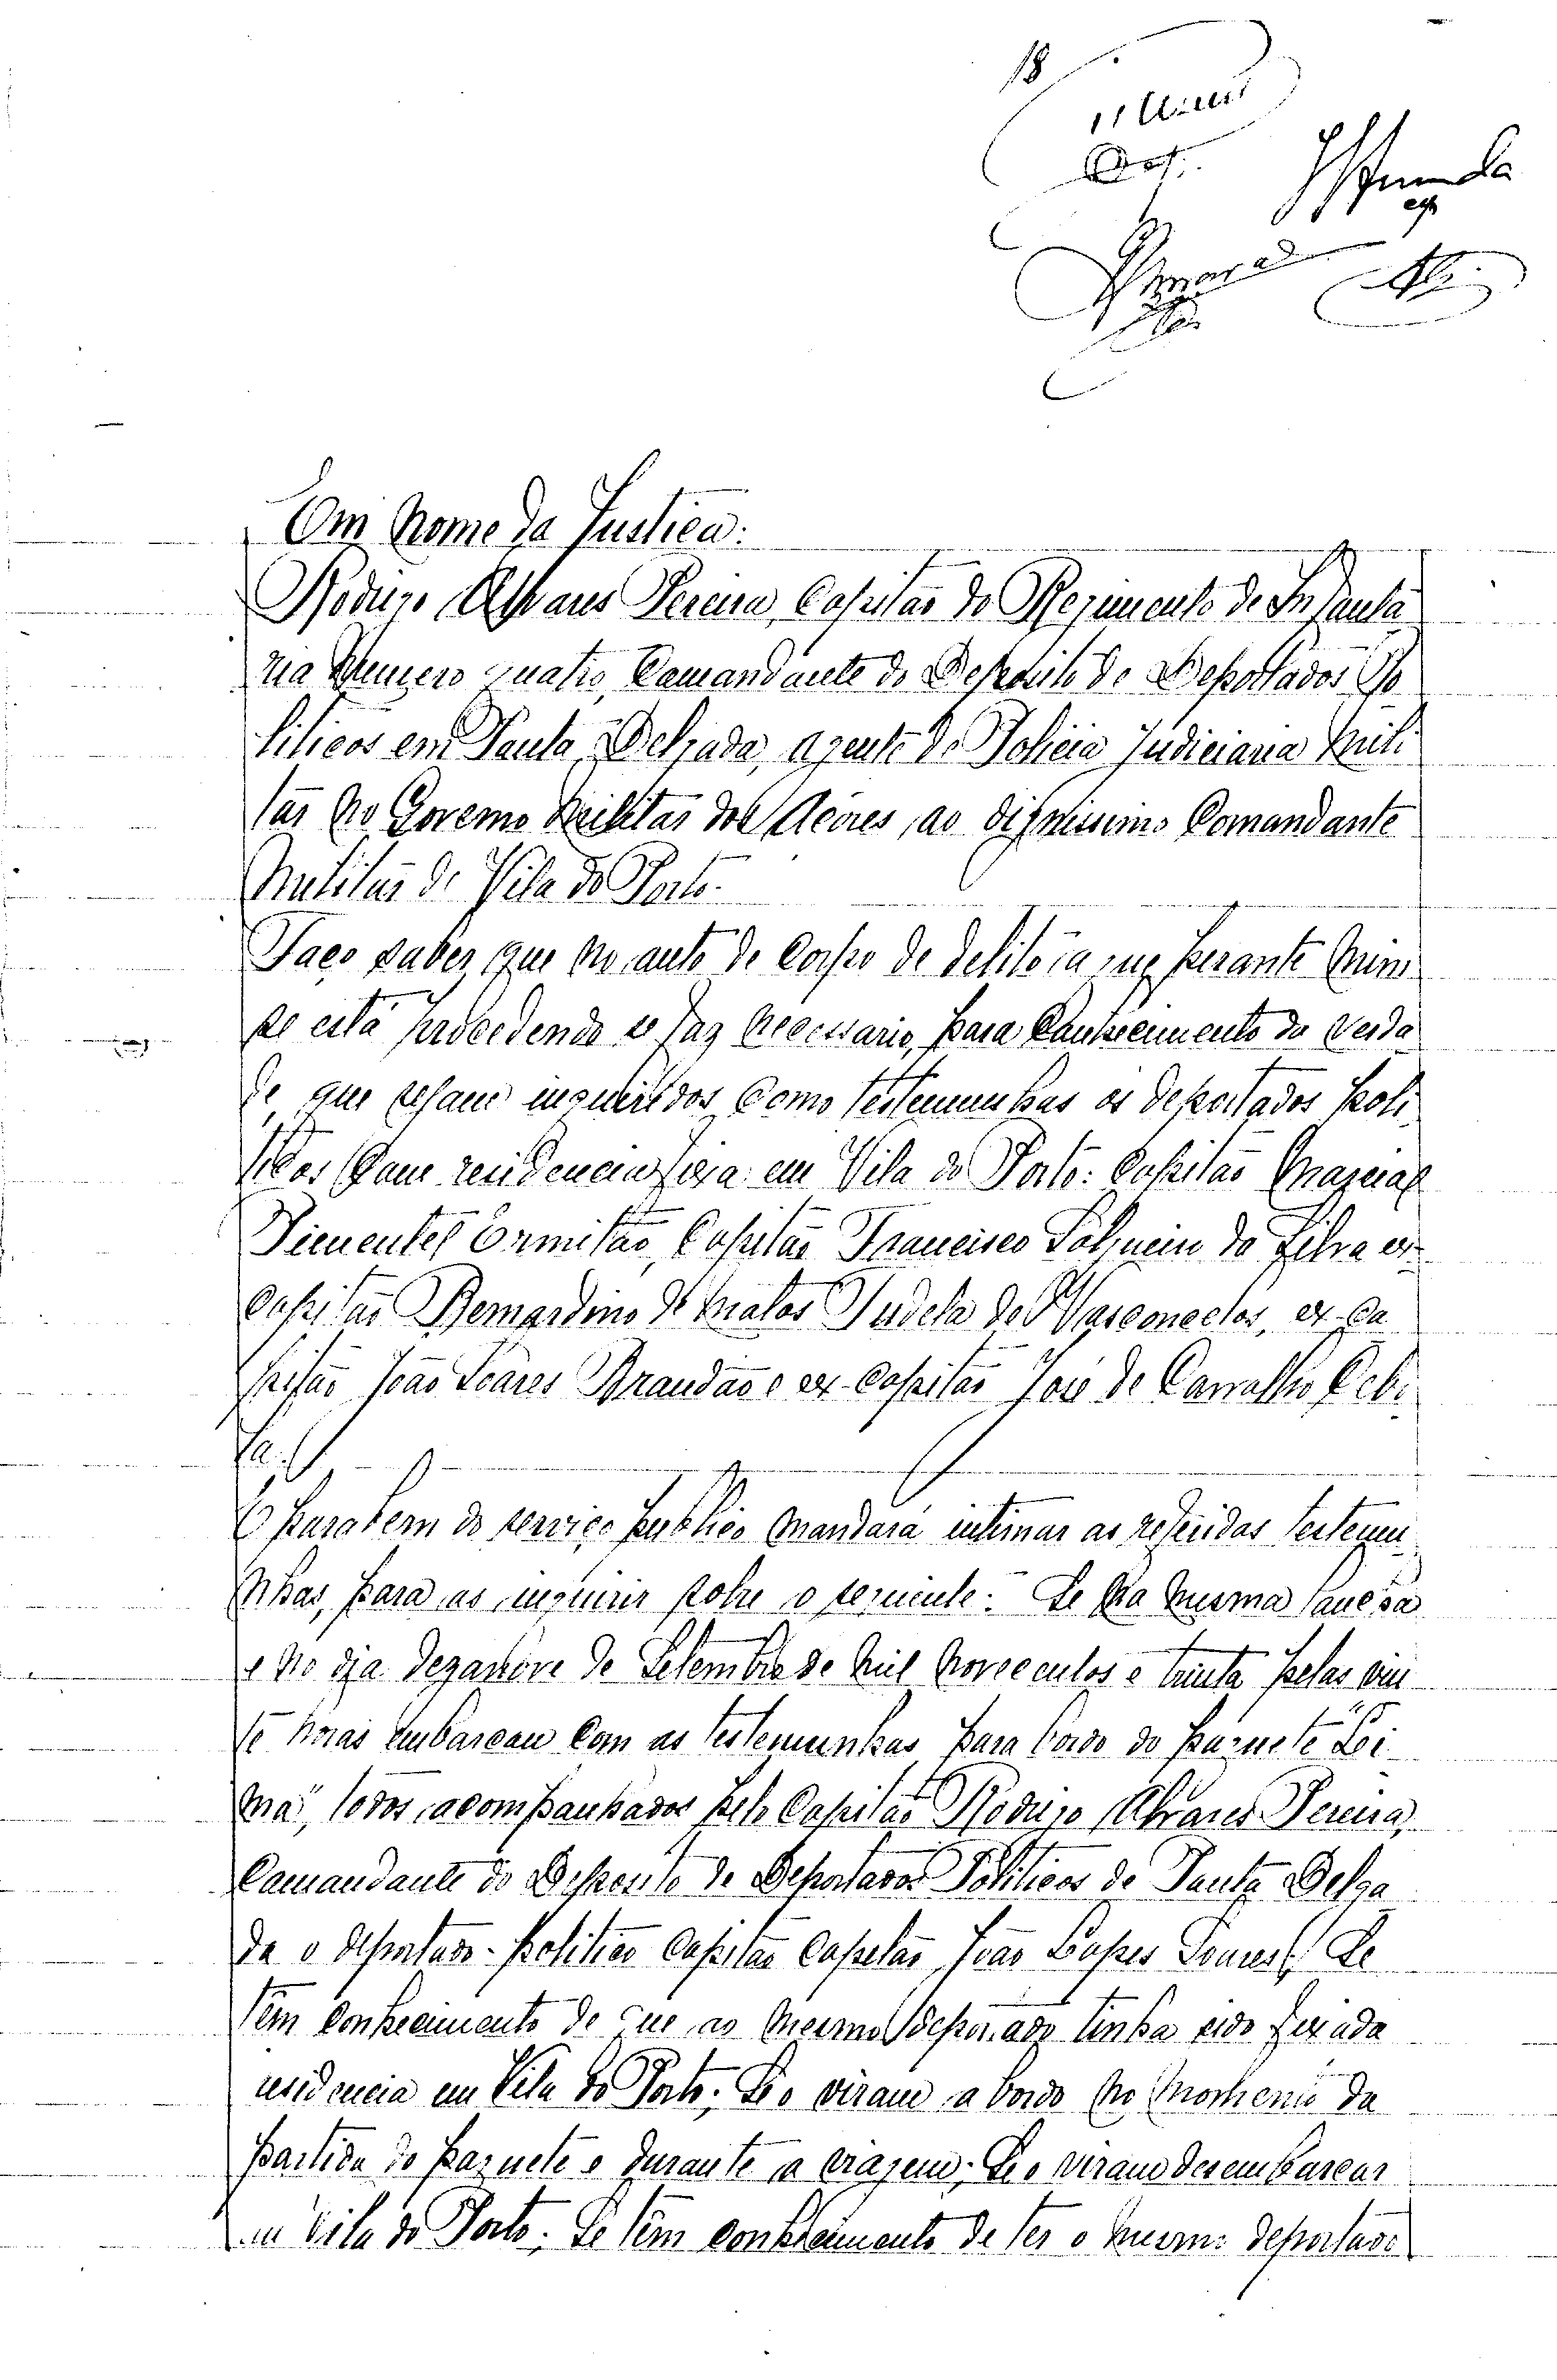 18
Em nome da Justiça:
Rodrigo Alvares Pereira, Capitão do Regimento de Infanta
ria Numero quatro, Comandante do Deposito de Deportados Po
liticos em Ponta Delgada, agente de Policia Judiciaria Mili
tar no Governo Militar dos Açores, ao dignissimo Comandante
Militar de Vila do Porto.
Faço saber que no auto de corpo de delito a que perante mim
se está procedendo se faz necessario, para conhecimento da verda
de, que sejam inquiridos como testemunhas os deportados poli
ticos com residencia fixa em Vila do Porto: Capitão
Pimentel Ermitão, Capitão Francisco da Silva ex-
capitão Bernardino de Matos Tudela de Vasconcelos, ex-ca
pitão João Soares Brandão e ex-capitão José de Carvalho

E para bem do serviço publico mandará intimar as referidas testemu
nhas, para as inquirir sobre o seguinte: Se na mesma
e no dia dezanove de Setembro de mil novecentos e trinta pelas vin
te horas embarcou com as testemunhas para bordo do paquete "Li
ma", todos acompanhados pelo Capitão Rodrigo Alvares Pereira,
Comandante do Deposito de Deportados Politicos de Ponta Delga
da o deportado politico capitão capelão João Lopes Soares; Se
têm conhecimento de que ao mesmo deportado tinha sido fixada
residencia em Vila do Porto; Se o viram a bordo no momento da
partida do paquete e durante a viagem; Se o viram desembarcar
em Vila do Porto; Se têm conhecimento de ter o mesmo deportado